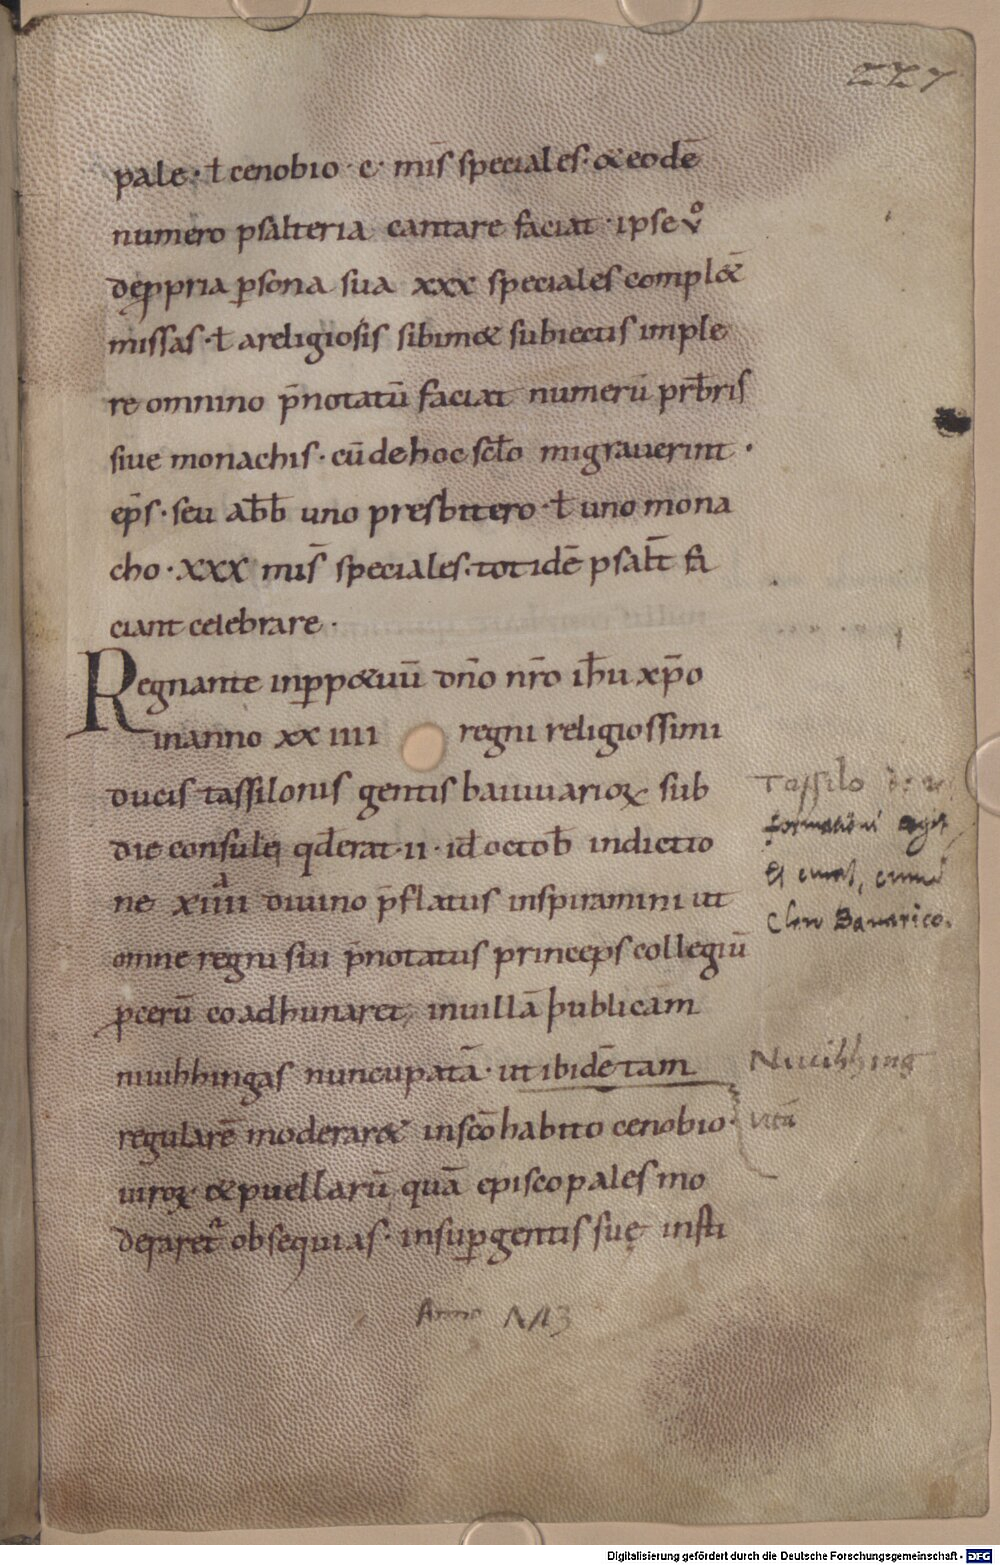 227
pale · ł cenobio · c · mis̄ speciales · & eodē
numero psalteria cantare faciat · ipse v̊
de ꝓpria ꝑsona sua xxx speciales compl&
missas · ł a religiosis sibim& subiectis imple
re omnino p̄notatū faciat numerū prb̄ris
sive monachis · cū de hoc sc̄lo migraverint ·
ep̄s · seu abb̄ uno presbitero · ł uno mona
cho · XXX mis̄ speciales · totidē psalt̄ fa
ciant celebrare ·
Regnante in ꝑp&uū dn̄o nr̄o ih̄u xp̄o
in anno xx iiii regni religiossimi
ducis tassilonis gentis baiuuarioꝝ sub
die consule qđ erat · ii · iđ octob̄ indictio
ne xiiii divino p̄flatus inspiramini ut
omne regni sui p̄notatus princeps collegiū
ꝓcerū coadhunaret, in villā publicam
niuihhingas nuncupatā · ut ibidē tam
regularē moderar& in scō habito cenobio ·
viroꝝ & puellarū quā episcopales mo
deraret᷑ obsequias · insuꝑ gentis suę insti
Tassilo
Et
Clero Bavarico.
Niuihhing
vitā
Anno
Digitalisierung gefördert durch die Deutsche Forschungsgemeinschaft - DFG